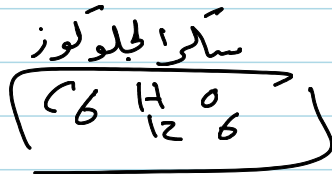 سكر الجلوكوز
C6 H12 O6